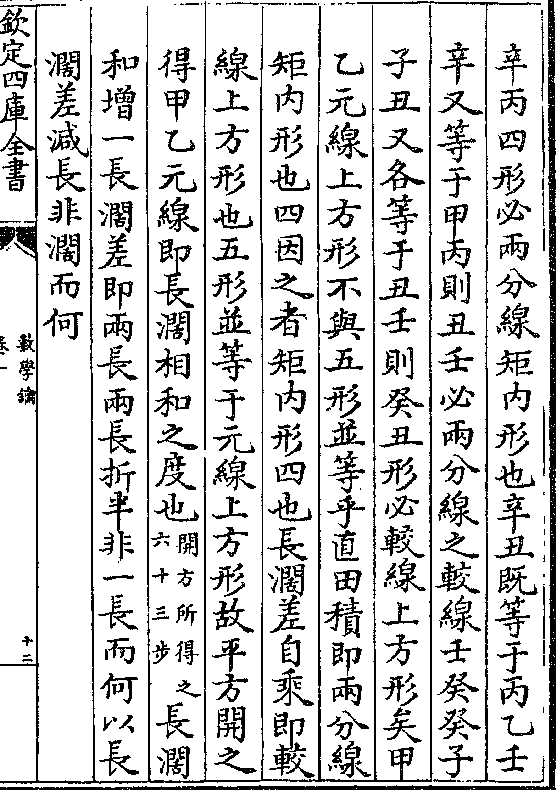 辛丙四形必兩分線矩内形也辛丑既等于丙乙壬
辛又等于甲丙則丑壬必兩分線之較線壬癸癸子
子丑又各等于丑壬則癸丑形必較線上方形矣甲
乙元線上方形不與五形並等乎直田積即兩分線
矩内形也四因之者矩内形四也長濶差自乘即較
線上方形也五形並等于元線上方形故平方開之
得甲乙元線即長濶相和之度也開方所得之六十三步長濶
和增一長濶差即兩長兩長折半非一長而何以長
濶差減長非濶而何
欽定四庫全書
數學鑰
卷一
十二